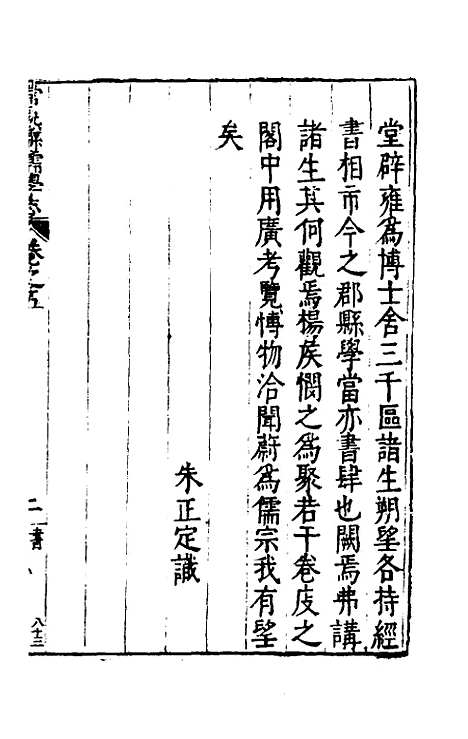 堂辟雍為博士舍三千區諸生朔望各持經
書相市今之郡縣學當亦書肆也闕焉弗講
諸生其何觀焉楊侯憫之為聚若干卷庋之
閣中用廣考覽博物洽聞蔚為儒宗我有望
矣
朱正定識
常熟縣儒學志 卷之五
八十三